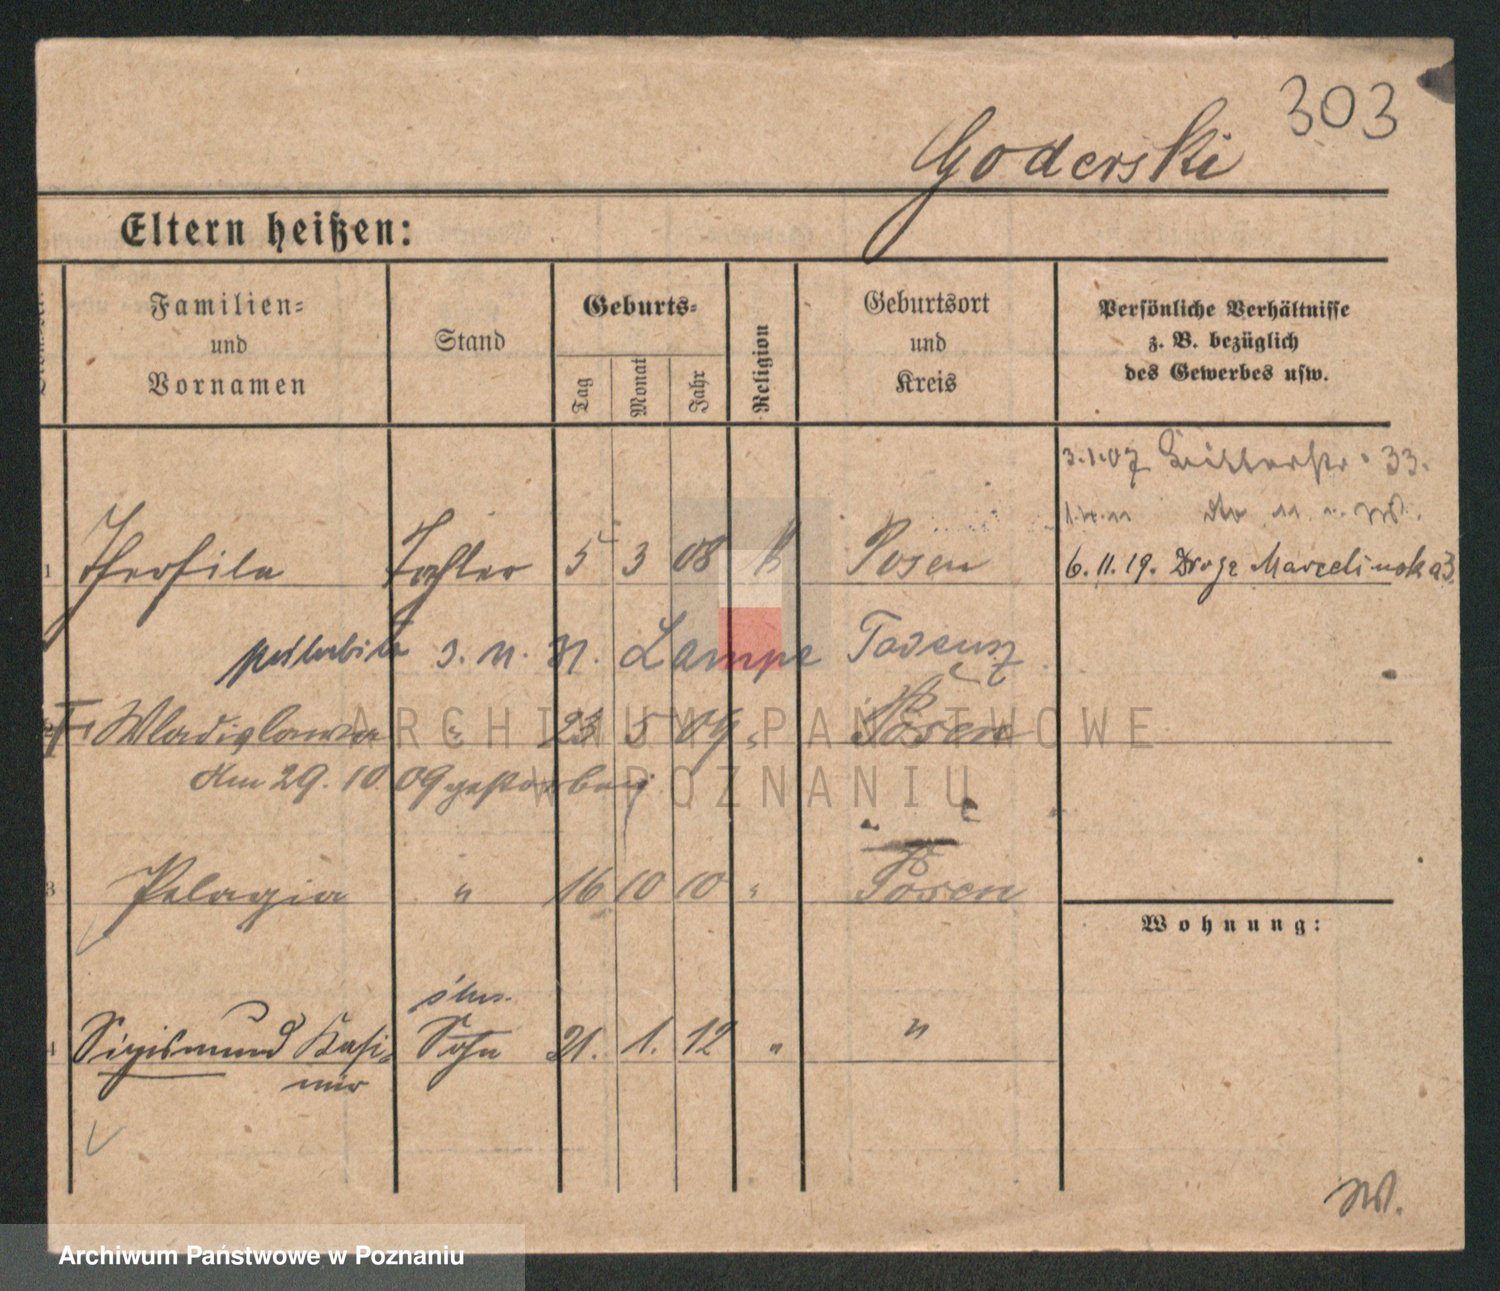 303
Goderski
Eltern heißen:
Familien=
und
Vornamen
Stand
Geburts=
Tag
Monat
Jahr
Religion
Geburtsort
und
Kreis
Persönliche Verhältnisse
z. B. bezüglich
des Gewerbes usw.
3.1.07 33.
1 Theofila Tochter 5 3 08 k Posen
6. 11. 19. Droga Marcelinska 3.
poślubiła Lampe Tadeusz
Wladislawa " 23 5 09 " Posen
Am 29. 10. 09 gestorben
3 Pelagia " 16 10 10 " Posen
Wohnung:
4 Sigismund Kasi= Sohn 21. 1. 12 " "
mir
ARCHIWUM PAŃSTWOWE
W POZNANIU
Archiwum Państwowe w Poznaniu